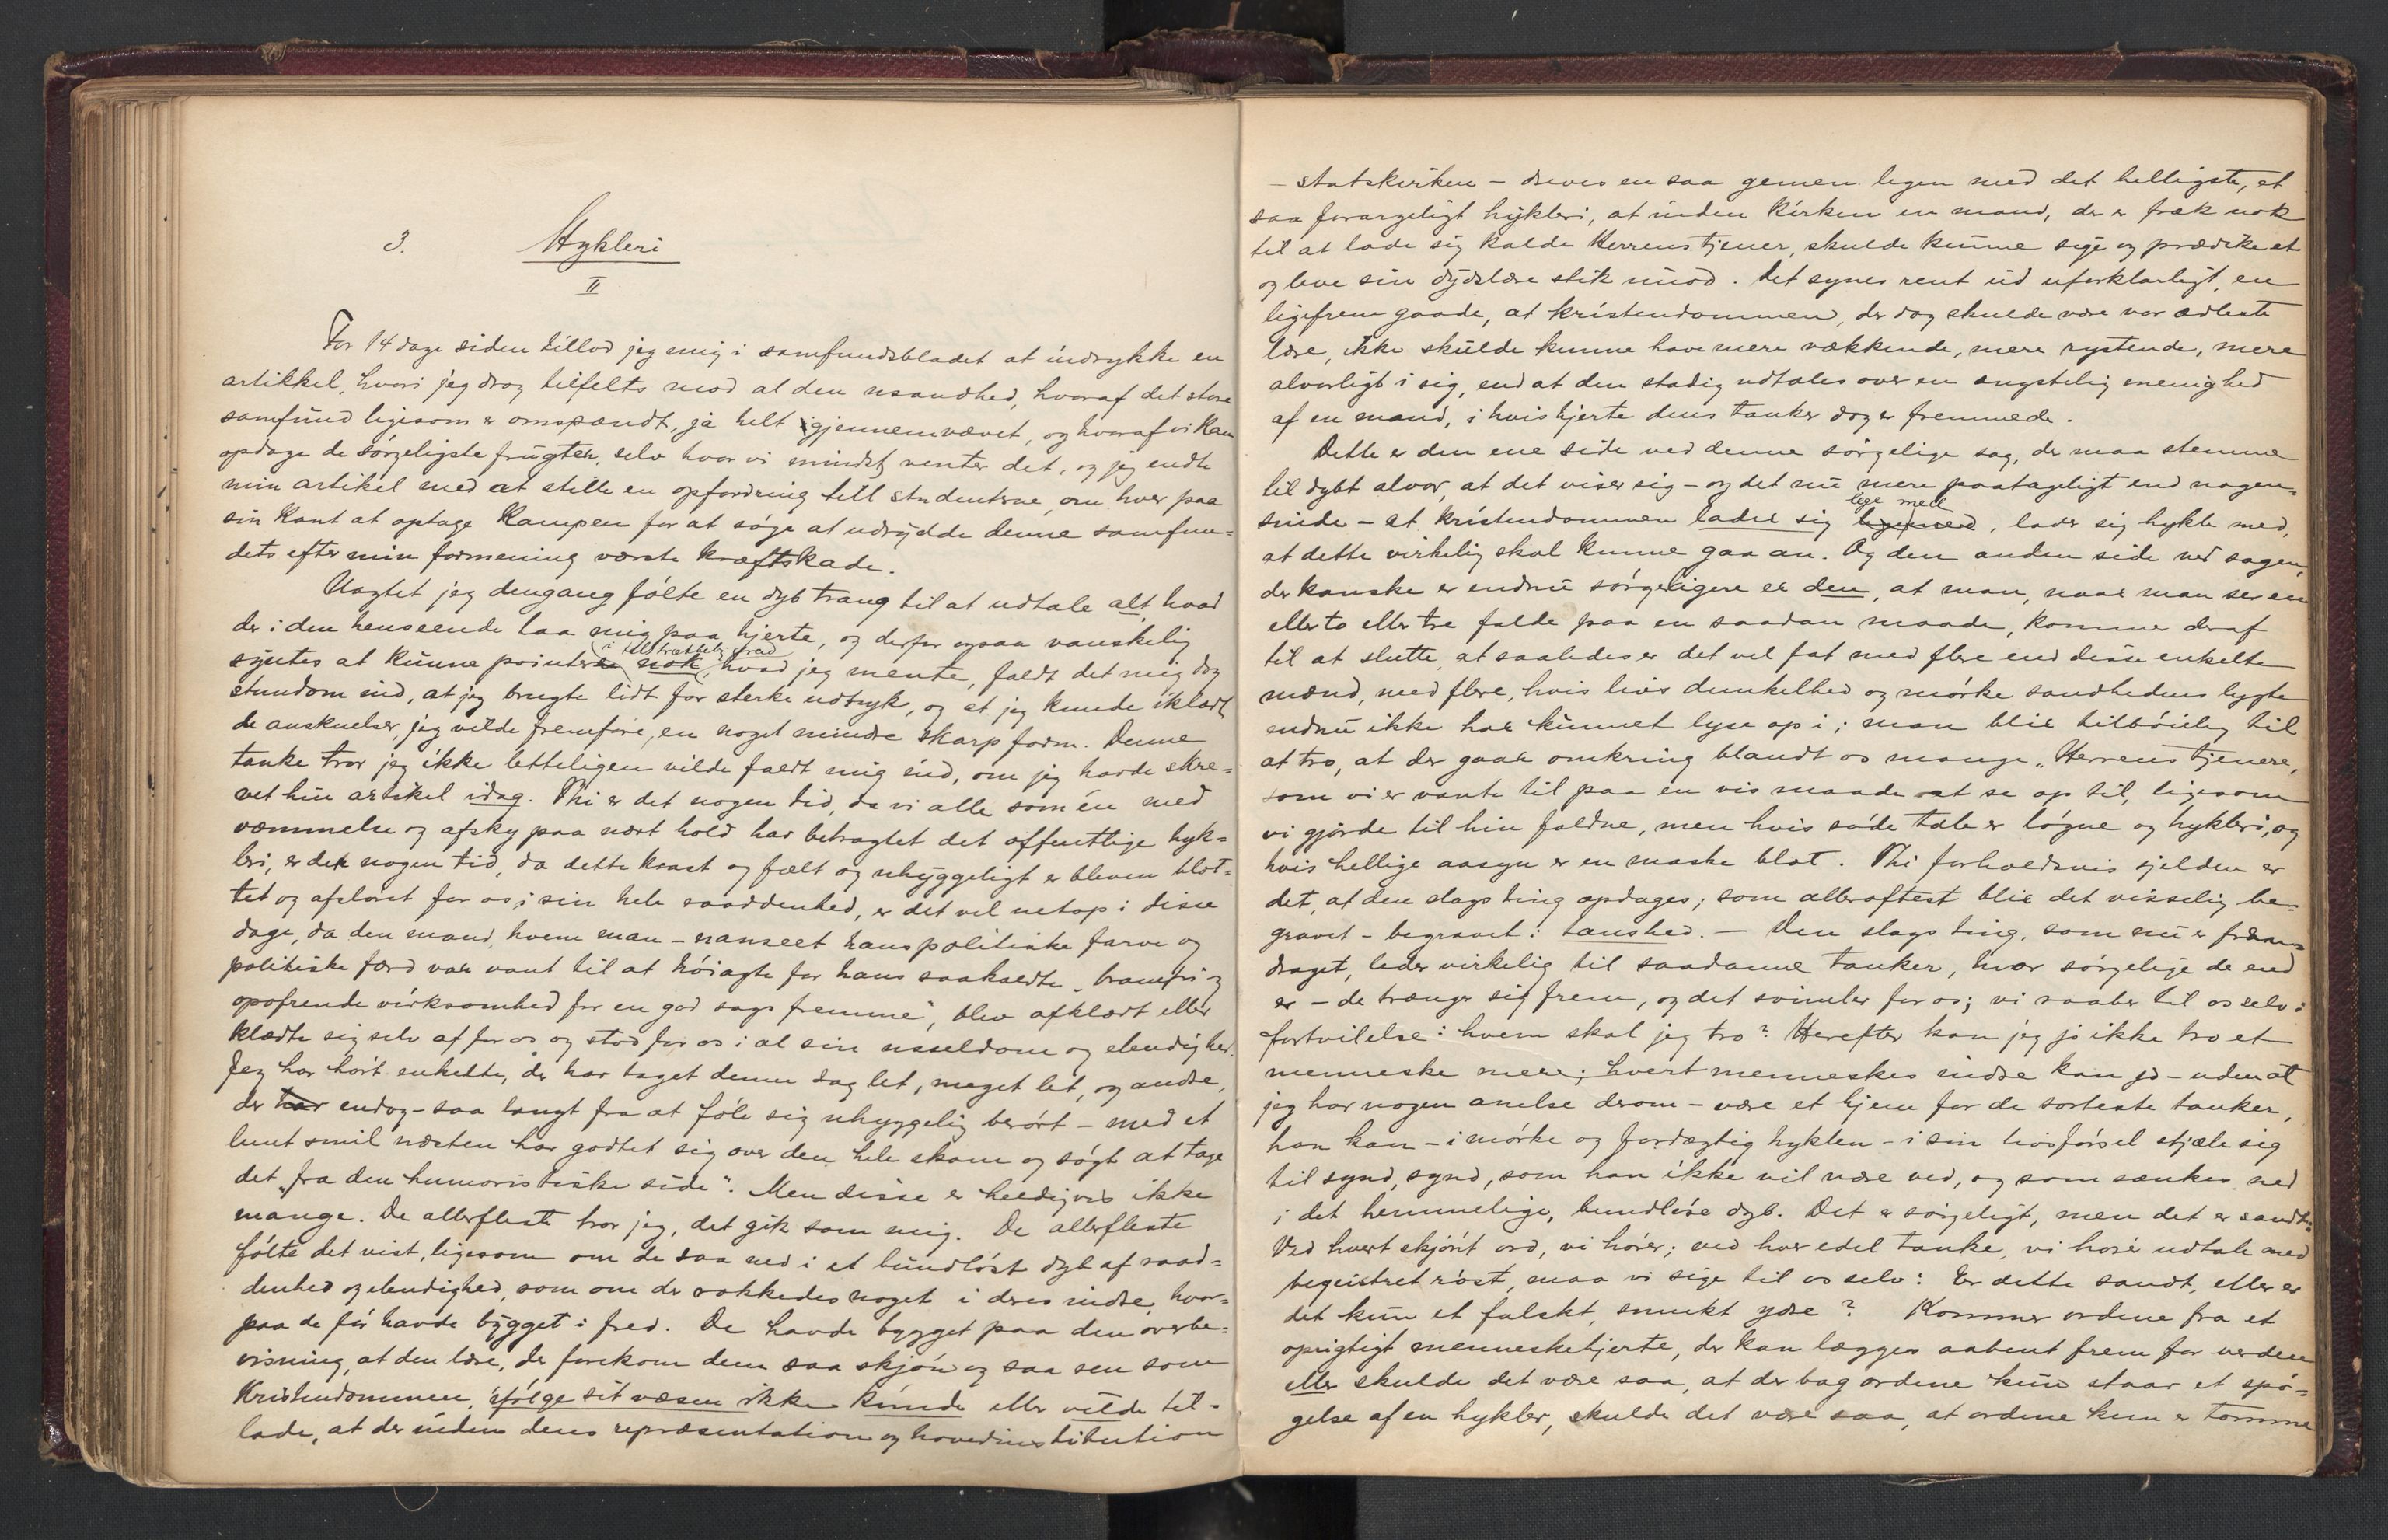 3. Hykleri
II
For 14 dage siden tillod jeg mig i samfundsbladet at indrykke en
artikkel, hvori jeg drog tilfelts mod al den usandhed, hvoraf det store
samfund ligesom er omspændt, ja helt gjennemvævet, og hvoraf vi kan
opdage de sørgeligste frugter, selv hvor vi mindst venter det, og jeg endte
min artikel med at stille en opfordring till studenterne om hver paa
sin kant at optage kampen for at søge at udrydde denne samfun=
dets efter min formening værste kræftskade.
Uagtet jeg dengang følte en dyb trang til at udtale alt, hvad
der i den henseende laa mig paa hjerte, og derfor ogsaa vanskelig
i tilstrækkelig grad
syntes at kunne pointere nok, hvad jeg mente, faldt det mig dog
stundom ind, at jeg brugte lidt for sterke udtryk, og at jeg kunde iklædt
de anskuelser, jeg vilde fremføre, en noget mindre skarp form. Denne
tanke tror jeg ikke letteligen vilde faldt mig ind, om jeg havde skre=
vet hin artikel idag. Thi er det nogen tid, da vi alle som én med
væmmelse og afsky paa nært hold har betragtet det offentlige hyk=
leri, er det nogen tid, da dette kvast og fælt og uhyggeligt er bleven blot=
tet og afsløret for os i sin hele raaddenhed, er det vel netop i disse
dage, da den mand, hvem man – uanseet hans politiske farve og
politiske færd var vant til at høiagte for hans saakaldte „bramfri og
opofrende virksomhed for en god sags fremme", blev afklædt eller
klædte sig selv af for os og stod for os i al sin usseldom og elendighed.
Jeg har hørt enkelte, der har taget denne sag let, meget let, og andre,
der har endog – saa langt fra at føle sig uhyggelig berørt – med et
lunt smil næsten har godtet sig over den hele skam og søgt at tage
det „fra den humoristiske side". Men disse er heldigvis ikke
mange. De allerfleste tror jeg, det gik som mig. De allerfleste
følte det vist, ligesom om de saa ned i et bundløst dyb af raad=
denhed og elendighed, som om der rokkedes noget i deres indre, hvor=
paa de før havde bygget i fred. De havde bygget paa den overbe=
visning, at den lære, der forekom dem saa skjøn og saa ren som
Kristendommen, ifølge sit væsen ikke kunde eller vilde til=
lade, at der inden dens repræsentation og hovedinstitution
– statskirken – dreves en saa gemen legen med det helligste, et
saa forargeligt hykleri, at inden kirken en mand, der er fræk nok
til at lade sig kalde Herrens tjener, skulde kunne sige og prædike et
og leve sin dydslære stik imod. Det synes rent ud uforklarligt, en
ligefrem gaade, at kristendommen, der dog skulde være vor ædleste
lære, ikke skulde kunne have mere vækkende, mere rystende, mere
alvorligt i sig, end at den stadig udtales over en ængstelig menighed
af en mand, i hvis hjerte dens tanker dog er fremmede.
Dette er den ene side ved denne sørgelige sag, der maa stemme
til dybt alvor, at det viser sig – og det nu mere paatageligt end nogen=
lege med
sinde – at kristendommen lader sig , lader sig hykle med,
at dette virkelig skal kunne gaa an. Og den anden side ved sagen,
der kanske er endnu sørgeligere er den, at man, naar man ser en
eller to eller tre falde paa en saadan maade, kommer deraf
til at slutte, at saaledes er det vel fat med flere end disse enkelte
mænd, med flere, hvis livs dunkelhed og mørke sandhedens lygte
endnu ikke har kunnet lyse op i; man blir tilbøielig til
at tro, at der gaar omkring blandt os mange „Herrens tjenere,
som vi er vante til paa en vis maade at se op til, ligesom
vi gjørde til hin faldne, men hvis søde tale er løgne og hykleri, og
hvis hellige aasyn er en maske blot. Thi forholdsvis sjelden er
det, at den slags ting opdages; som alleroftest blir det visselig be=
gravet – begravet i taushed. – Den slags ting, som nu er frem=
draget, leder virkelig til saadanne tanker, hvor sørgelige de end
er – de trænger sig frem, og det svimler for os; vi raaber til os selv i
fortvilelse: hvem skal jeg tro? Herefter kan jeg jo ikke tro et
menneske mere; hvert menneskes indre kan jo – uden at
jeg har nogen anelse derom – være et hjem for de sorteste tanker,
han kan – i mørke og fordægtig hyklen – i sin livsførsel stjæle sig
til synd, synd, som han ikke vil være ved, og som sænkes ned
i det hemmelige, bundløse dyb. Det er sørgeligt, men det er sandt:
Ved hvert skjønt ord, vi hører; ved hver edel tanke, vi hører udtale med
begeistret røst, maa vi sige til os selv: Er dette sandt, eller er
det kun et falskt, smukt ydre? Kommer ordene fra et
oprigtigt menneskehjerte, der kan lægges aabent frem for verden
eller skulde det være saa, at der bag ordene kun staar et spø=
gelse af en hykler, skulde det være saa, at ordene kun er tomme